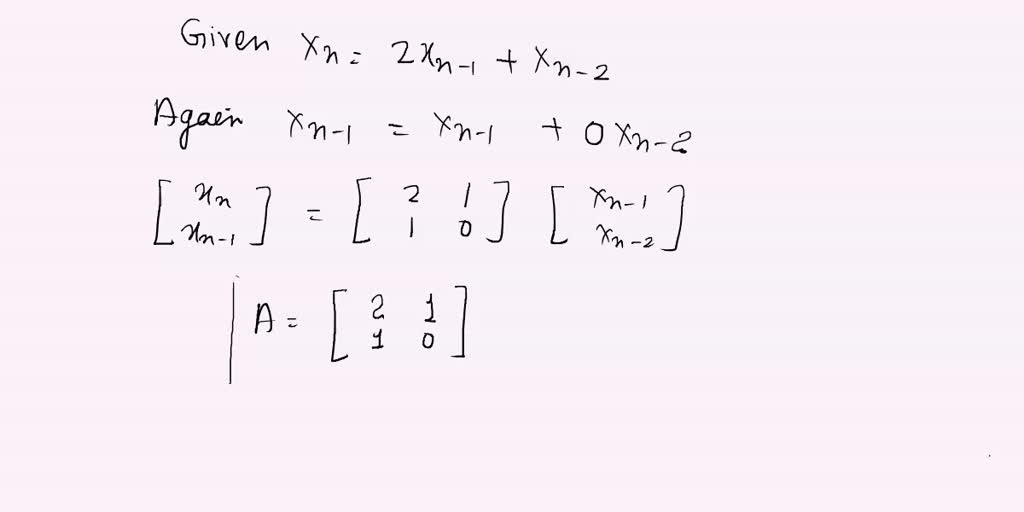 Given xn = 2xn-1 + xn-2
Again xn-1 = xn-1 + 0xn-2
[xn xn-1] = [2 1 1 0] [xn-1 xn-2]
A = [2 1 1 0]